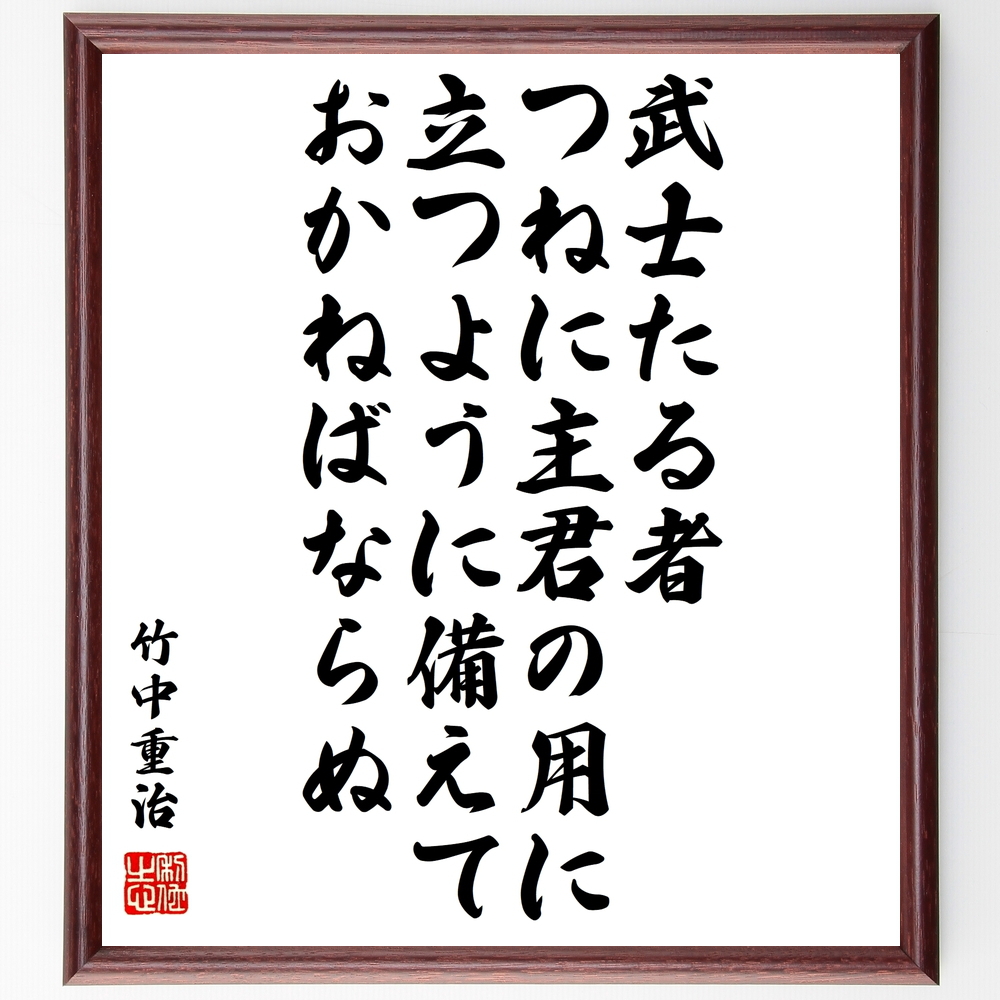 武士たる者
つねに主君の用に
立つように備えて
おかねばならぬ
竹中重治